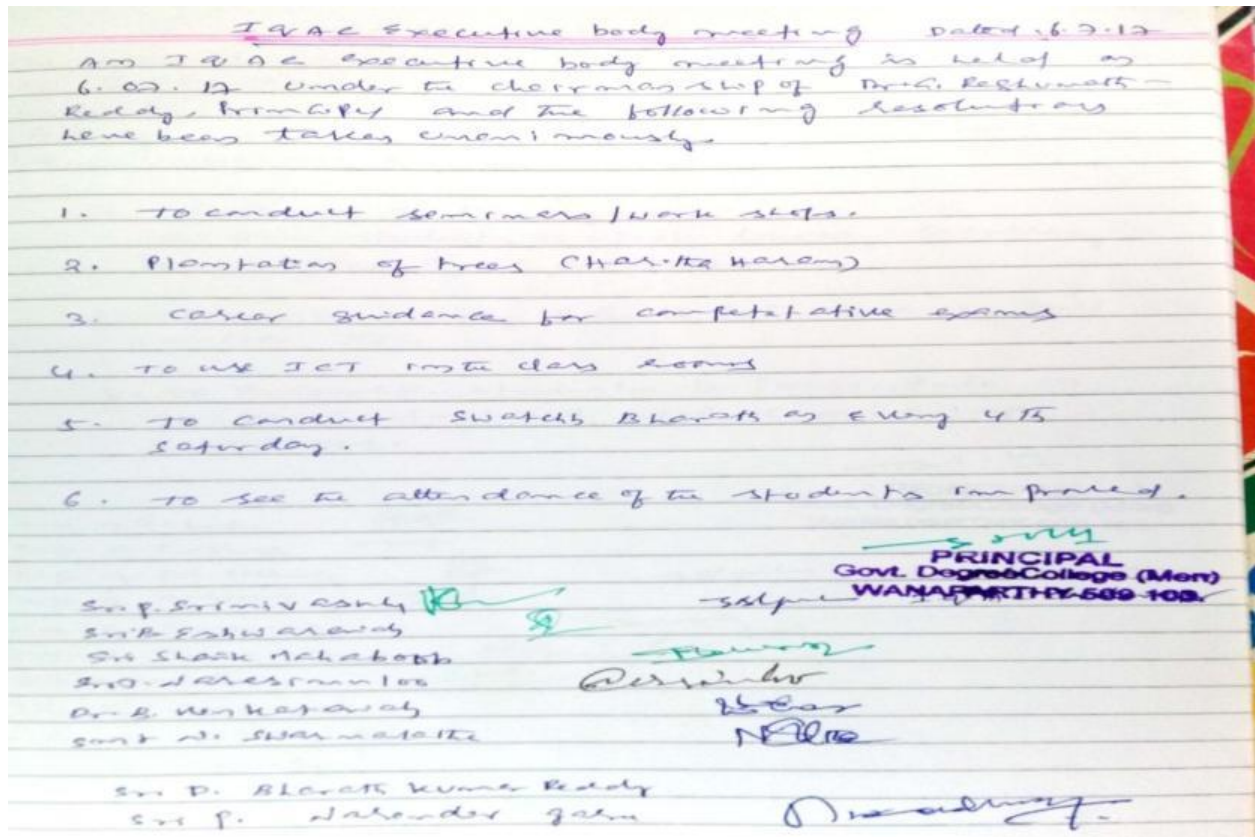 IQAC Executive body meeting Dated. 6.7.17
An IQAC executive body meeting is held on
6.07.17 under the chairmanship of Dr. G. Reghunath-
Reddy, Principal and the following resolutions
have been taken unanimously.
1. To conduct seminars / work shops.
2. Plantation of trees (Haritha Haram)
3. career guidance for competetative exams
4. To use ICT in the class rooms
5. To conduct Swatchh Bharath on Every 4th
saturday.
6. To see the attendance of the students improved.
PRINCIPAL
Govt. Degree College (Men)
WANAPARTHY-509 103.
Sri P. Srinivasulu
Sri B. Eshwaraiah
Sri Shaik Mahaboob
Sri D. Narasimuloo
Dr. B. Venkataiah
Smt N. Swarnalatha
Sri D. Bharath Kumar Reddy
Sri P. Narender